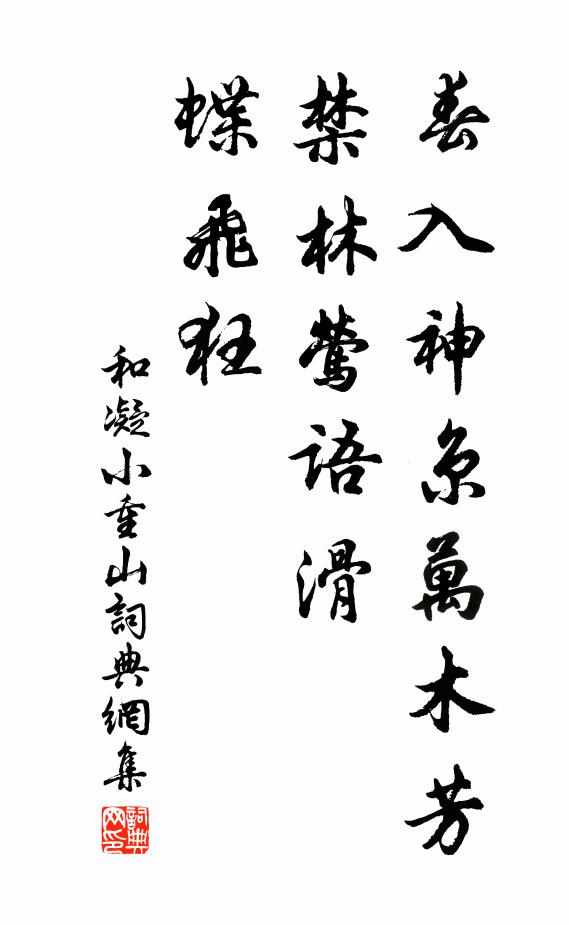 春入神京萬木芳
禁林鶯語滑
蝶飛狂
和凝小重山詞典網集
詞典网印